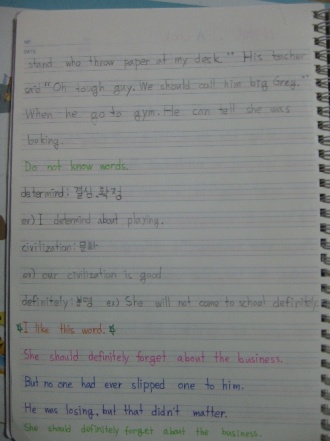 stand who throw paper at my desk." His teacher
said "Oh tough guy. We should call him big Greg."
When he go to gym. He can tell she was
looking.
Do not know words.
determind: 결심, 확정
ex) I determind about playing.
civilization: 문화
ex) our civilization is good
definitely: 분명 ex) She will not come to school definitely
☆I like this word.☆
She should definitely forget about the business.
But no one had ever slipped one to him.
He was losing, but that didn't matter.
She should definitely forget about the business.